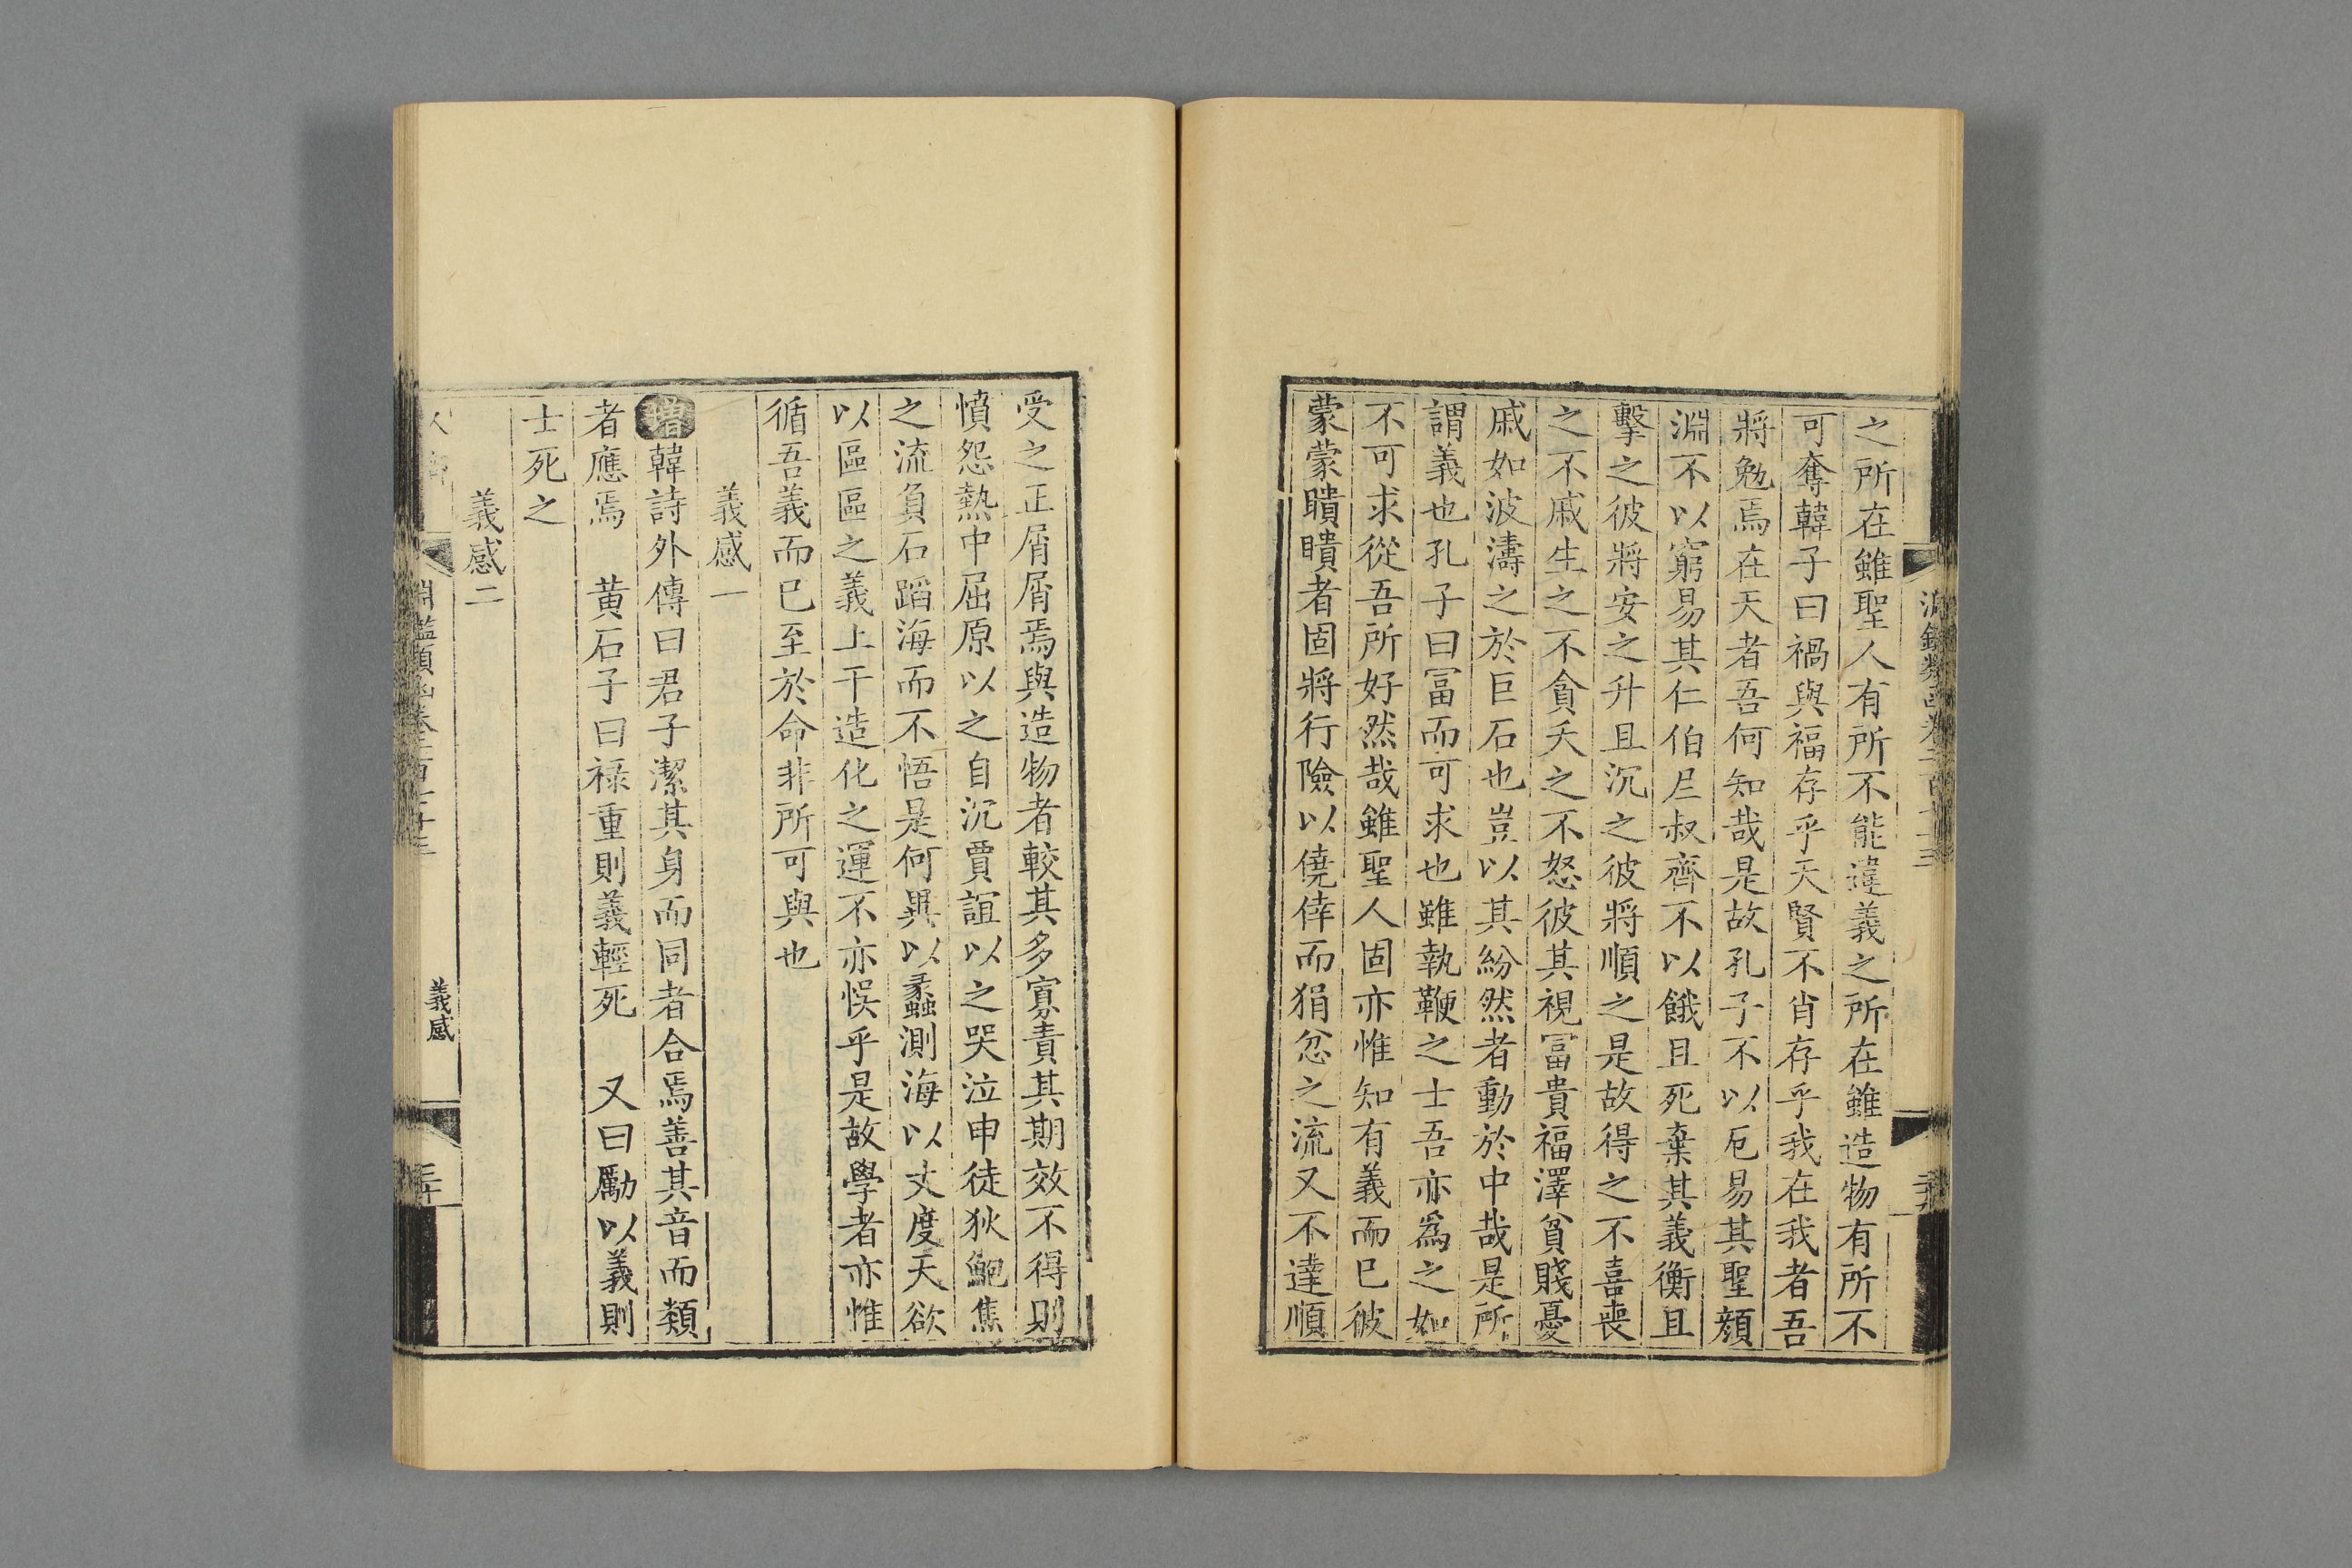 之所在雖聖人有所不能違義之所在雖造物有所不
可奪韓子曰禍與福存乎天賢不肖存乎我在我者吾
將勉焉在天者吾何知哉是故孔子不以厄易其聖顏
淵不以窮易其仁伯𡰥叔齊不以餓且死棄其義衡且
擊之彼將安之升且沉之彼將順之是故得之不喜喪
之不戚生之不貪夭之不怒彼其視冨貴福澤貧賤憂
戚如波濤之於巨石也豈以其紛然者動於中哉是所
謂義也孔子曰冨而可求也雖執鞭之士吾亦為之如
不可求從吾所好然哉雖聖人固亦惟知有義而巳彼
蒙蒙瞶瞶者固將行險以僥倖而狷忿之流又不達順
受之正屑屑焉與造物者較其多寡責其期效不得則
憤怨熱中屈原以之自沉賈誼以之哭泣申徒狄鮑焦
之流負石蹈海而不悟是何異以蠡測海以丈度天欲
以區區之義上干造化之運不亦悞乎是故學者亦惟
循吾義而已至於命非所可與也
義感一
增韓詩外傳曰君子潔其身而同者合焉善其音而類
者應焉　黃石子曰祿重則義輕死　又曰勵以義則
士死之
義感二
淵鑑類函卷三百十三
義感